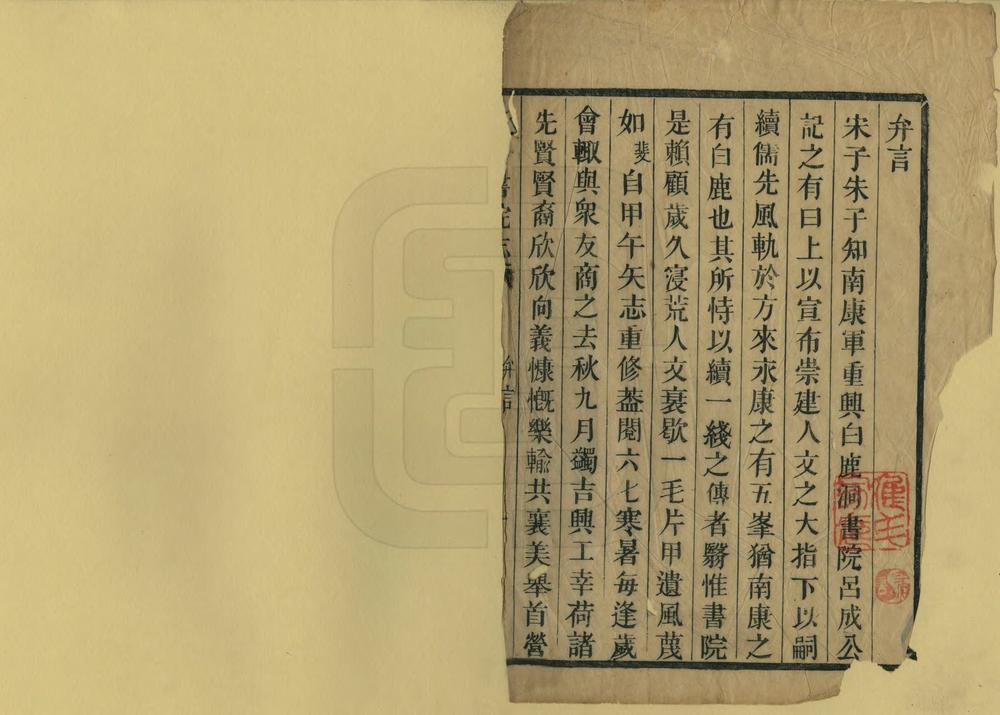 弁言
宋子朱子知南康軍重興白鹿洞書院呂成公
記之有曰上以宣布崇建人文之大指下以嗣
續儒先風軌於方來永康之有五峯猶南康之
有白鹿也其所恃以續一綫之傳者繄惟書院
是賴顧歲久寖荒人文衰歇一毛片甲遺風蔑
如斐自甲午矢志重修葢閱六七寒暑每逢歲
會輙與衆友商之去秋九月蠲吉興工幸荷諸
先賢賢裔欣欣向義慷慨樂輸共襄美舉首營
書院志
弁言